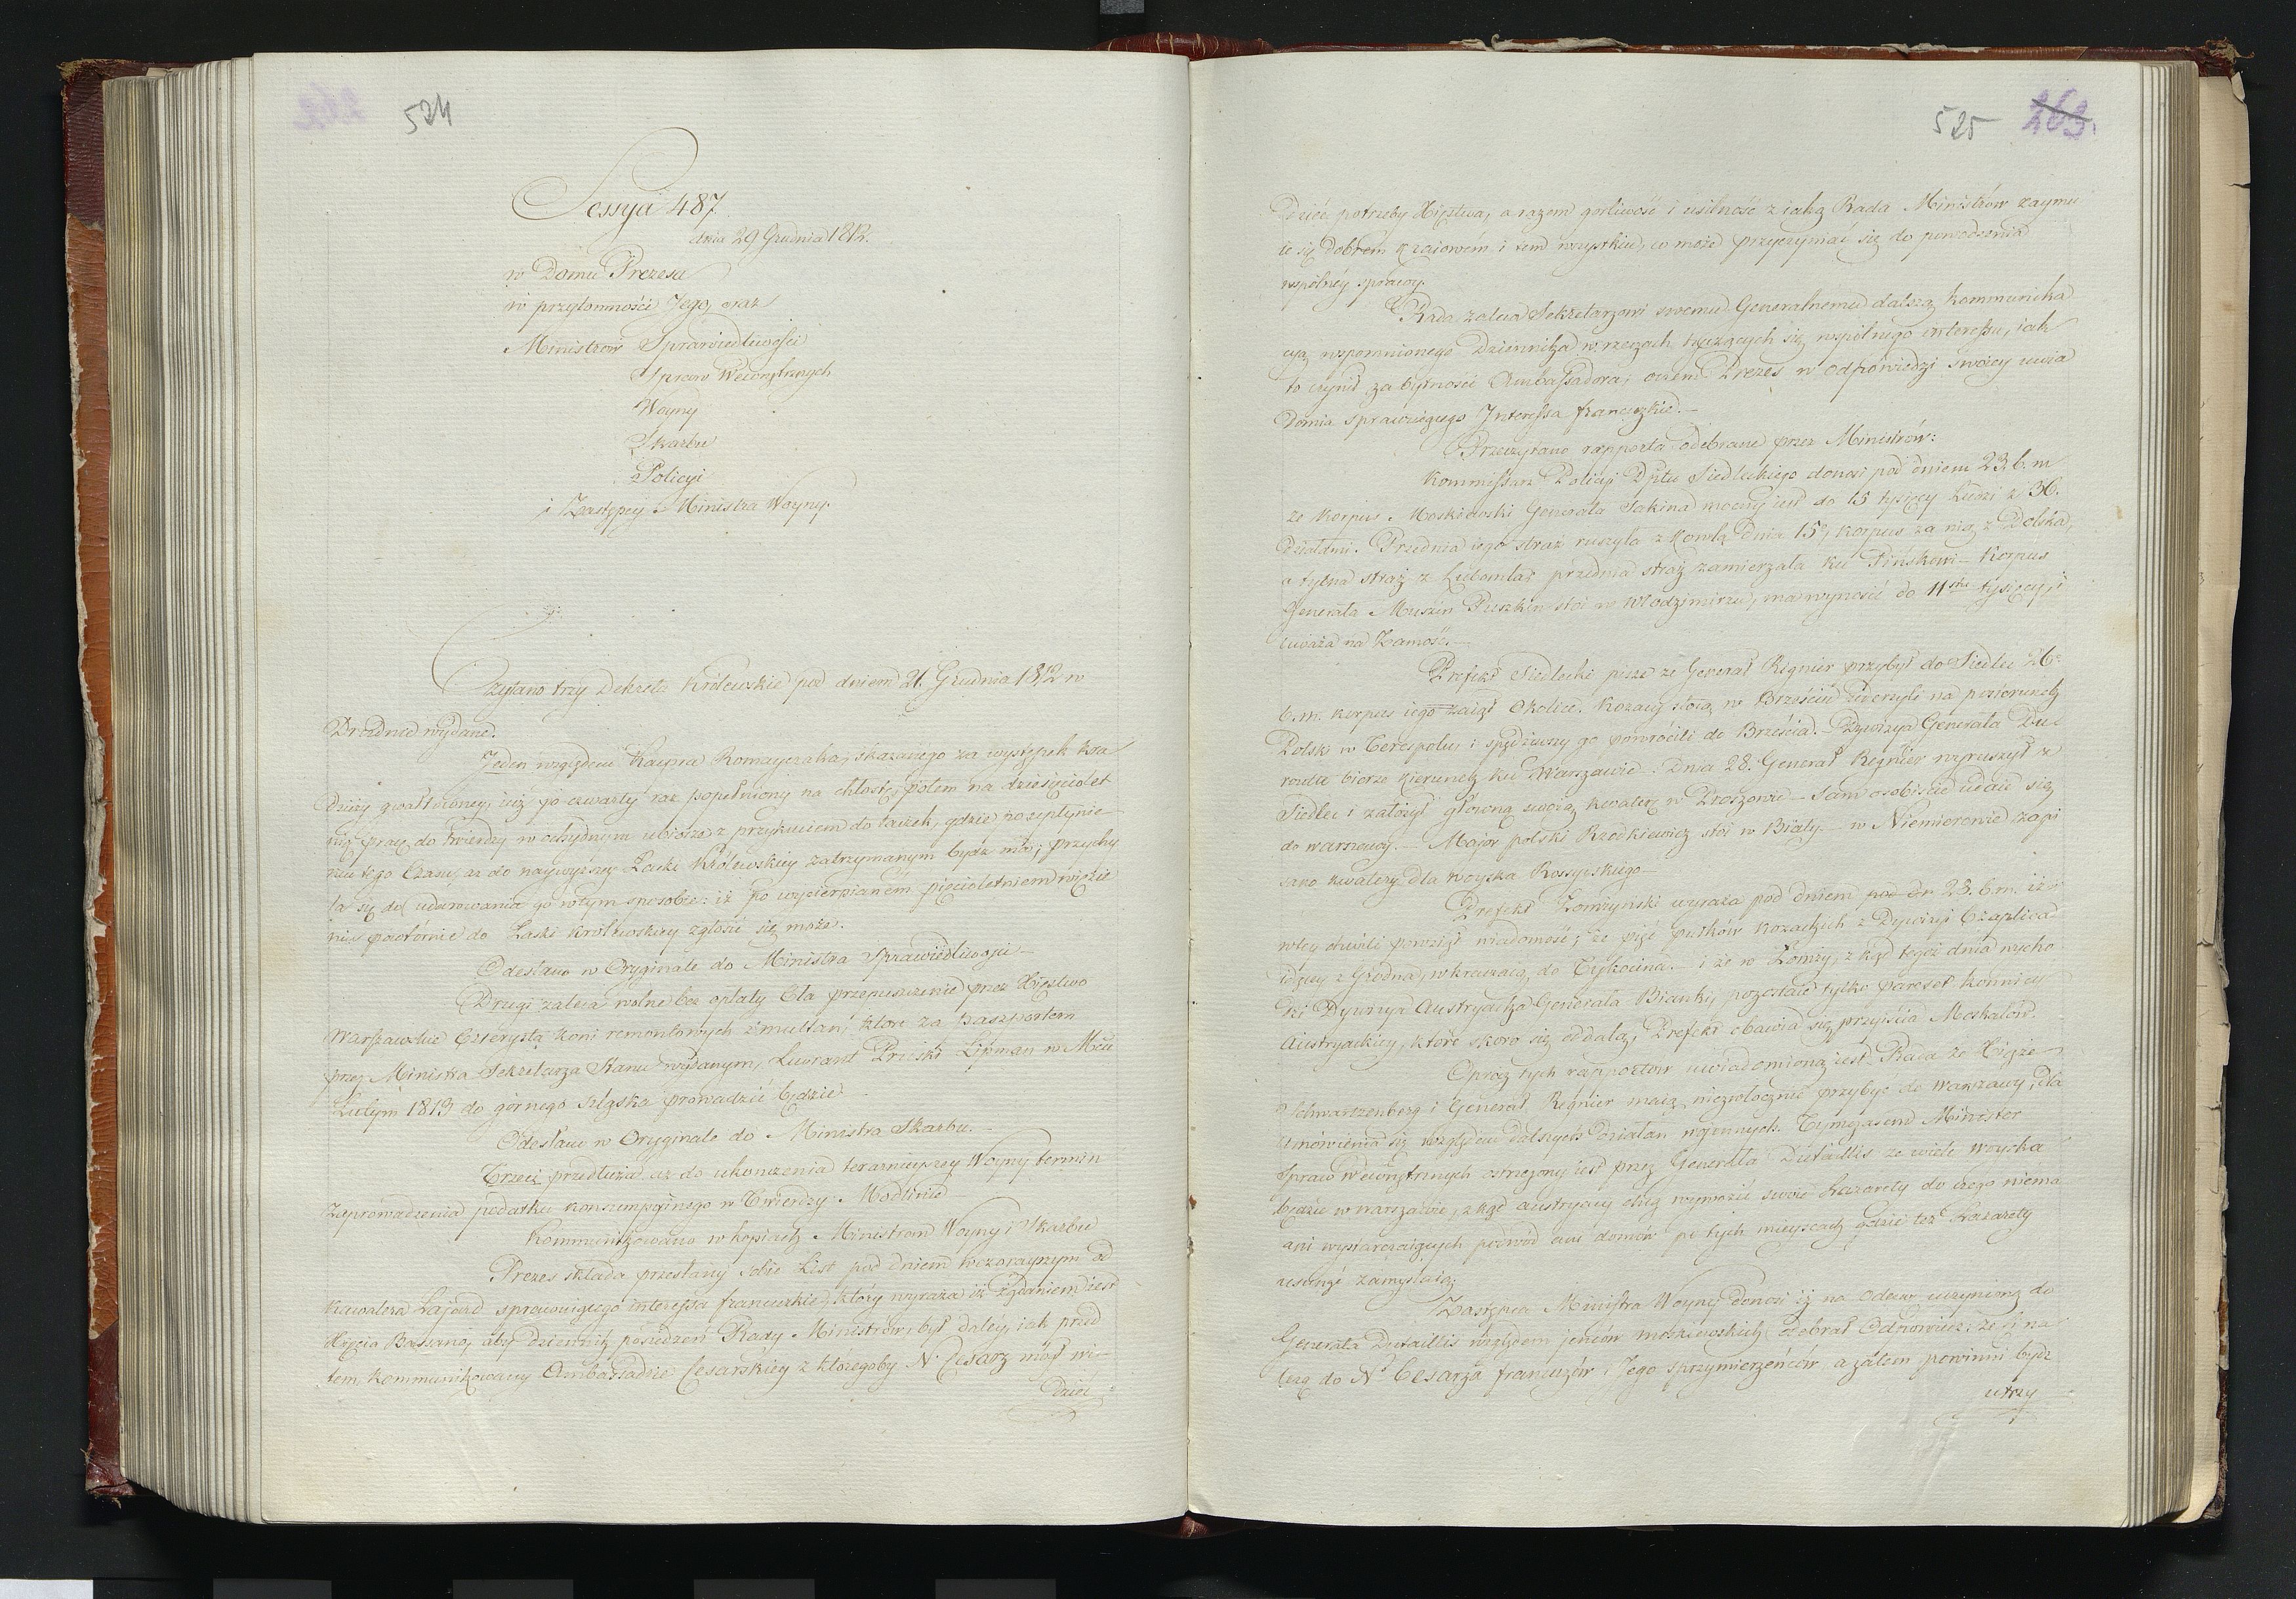 524
Sessya 487.
dnia 29 Grudnia 1812.
w Domu Prezesa
w przytomności Jego, oraz
Ministrów Sprawiedliwości
Spraw Wewnętrznych
Woyny
Skarbu
Policyi
i Zastępcy Ministra Woyny.
Czytano trzy Dekreta Królewskie pod dniem 21. Grudnia 1812 w
Dreźnie wydane.
Jeden względem Kacpra Romayczaka, skazanego za występek kra
dzieży gwałtowney, iuż po czwarty raz popełniony na chłostę, potem na dziesięciolet
nią pracę do twierdzy w ochydnym ubiorze z przykuciem do taczek, gdzie po upłynie
niu tego Czasu, aż do naywyższey Łaski Królewskiey zatrzymanym bydź ma; przychy
la się do udarowania go w tym sposobie: iż po wycierpianém pięcioletniem więzie
niu powtórnie do Łaski Królewskiey zgłosić się może.
Odesłano w Oryginale do Ministra Sprawiedliwości
Drugi zaleca wolne bez opłaty Cła przepuszczenie przez Xięstwo
Warszawskie Czterysta koni remontowych z multan, które za paszportem
przez Ministra Sekretarza Stanu wydanym, Liwerant Pruski Lipman w Mcu
Lutym 1813 do górnego Szląska prowadzić będzie
Odesłano w Oryginale do Ministra Skarbu.
Trzeci przedłuża aż do ukonczenia teraznieyszey Woyny termin
Zaprowadzenia podatku konsumpcyinego w Twierdzy Modlinie
Kommunikowano w kopiach Ministrom Woyny i Skarbu
Prezes składa przesłany sobie List pod dniem wczorayszym od
Kawalera Lajard sprawuiącego interessa francuzkie, który wyraża iż żądaniem iest
Xięcia Bassano, aby dziennik posiedzeń Rady Ministrów, był daley, iak przed
tem kommunikowany Ambassadzie Cesarskiey z któregoby N. Cesarz mógł wi-
dzieć
525 263.
Dzieć potrzeby Xięstwa, a razem gorliwość i usilność z iaką Rada Ministrów zaymu
ie się dobrem kraiowém i tem wszystkiem, co może przyczyniać się do powodzenia
wspólney sprawy.
Rada zaleca Sekretarzowi swemu Generalnemu dalszą kommunika
cyą wspomnionego Dziennika w rzeczach tyczących się wspólnego interessu, iak
to czynił za bytności Ambassadora; o czem Prezes w odpowiedzi swoiey uwia
domia sprawuiącego Interessa francuzkie.
Przeczytano rapporta odebrane przez Ministrów:
Kommissarz Policyi Dptu Siedleckiego donosi pod dniem 23. b. m
że Korpus Moskiewski Generała Sakena mocny iest do 15 tysięcy Ludzi z 36.
działami. Przednia iego straż ruszyła z Kowla dnia 15o, korpus za nią z Dolska,
a tylna straż z Lubomla; przednia straż zamierzała ku Pińskowi Korpus
Generała Mussin Puszkin stoi w Włodzimirzu, ma wynosić do 11stu tysięcy, i
uważa na Zamość.
Prefekt Siedlecki pisze że Generał Regnier przybył do Siedlec 26o
b. m. korpus iego zaiął Okolice. Kozacy stoią w Brześciu uderzyli na posterunek
Polski w Terespolu, i spędziwszy go powrócili do Brześcia. Dywizya Generała Du
rutta bierze kierunek ku Warszawie. Dnia 28. Generał Regnier wyruszył z
Siedlec i założył główną swoią kwaterę w Proszowie Sam osobiście udaie się
do warszawy. Major polski Rzodkiewicz stoi w Biały. w Niemierowie zapi
sano kwatery dla woyska Rossyiskiego
Prefekt Łomżyński wyraża pod dniem pod dn 23. b. m. iż w
w tey chwili powziął wiadomość, że pięć pułków kozackich z Dywizyi Czaplica
idący z Grodna, wkraczaią do Tykocina. i że w Łomży, z kąd tegoż dnia wycho
dzi Dywizya Austryacka Generała Bianki, pozostaie tylko pareset konnicy
Austryackiey, które skoro się oddalą, Prefekt obawia się przyiścia Moskalów.
Oprócz tych rapportow uwiadomioną iest Rada że Xiąże
Schwarzenberg i Generał Regnier maią niezwłocznie przybyć do Warszawy, dla
umówienia się względem dalszych działań woiennych. Tymczasem Minister
Spraw Wewnętrznych ostrzeżony iest przez Generała Dutaillis że wiele woyska
będzie w warszawie, z kąd austryacy chcą wywozić swoie Lazarety do czego niema
ani wystarczaiących podwod ani domów po tych mieyscach gdzie też Lazarety
urządzić zamyślaią.
Zastępca Ministra Woyny donosi iż na Odezwę uczynioną do
Generała Dutaillis względem jeńców moskiewskich odebrał Odpowiedź; że ci na
leżą do No Cesarza francuzów i Jego sprzymierzeńców, a zatem powinni bydź
utrzy